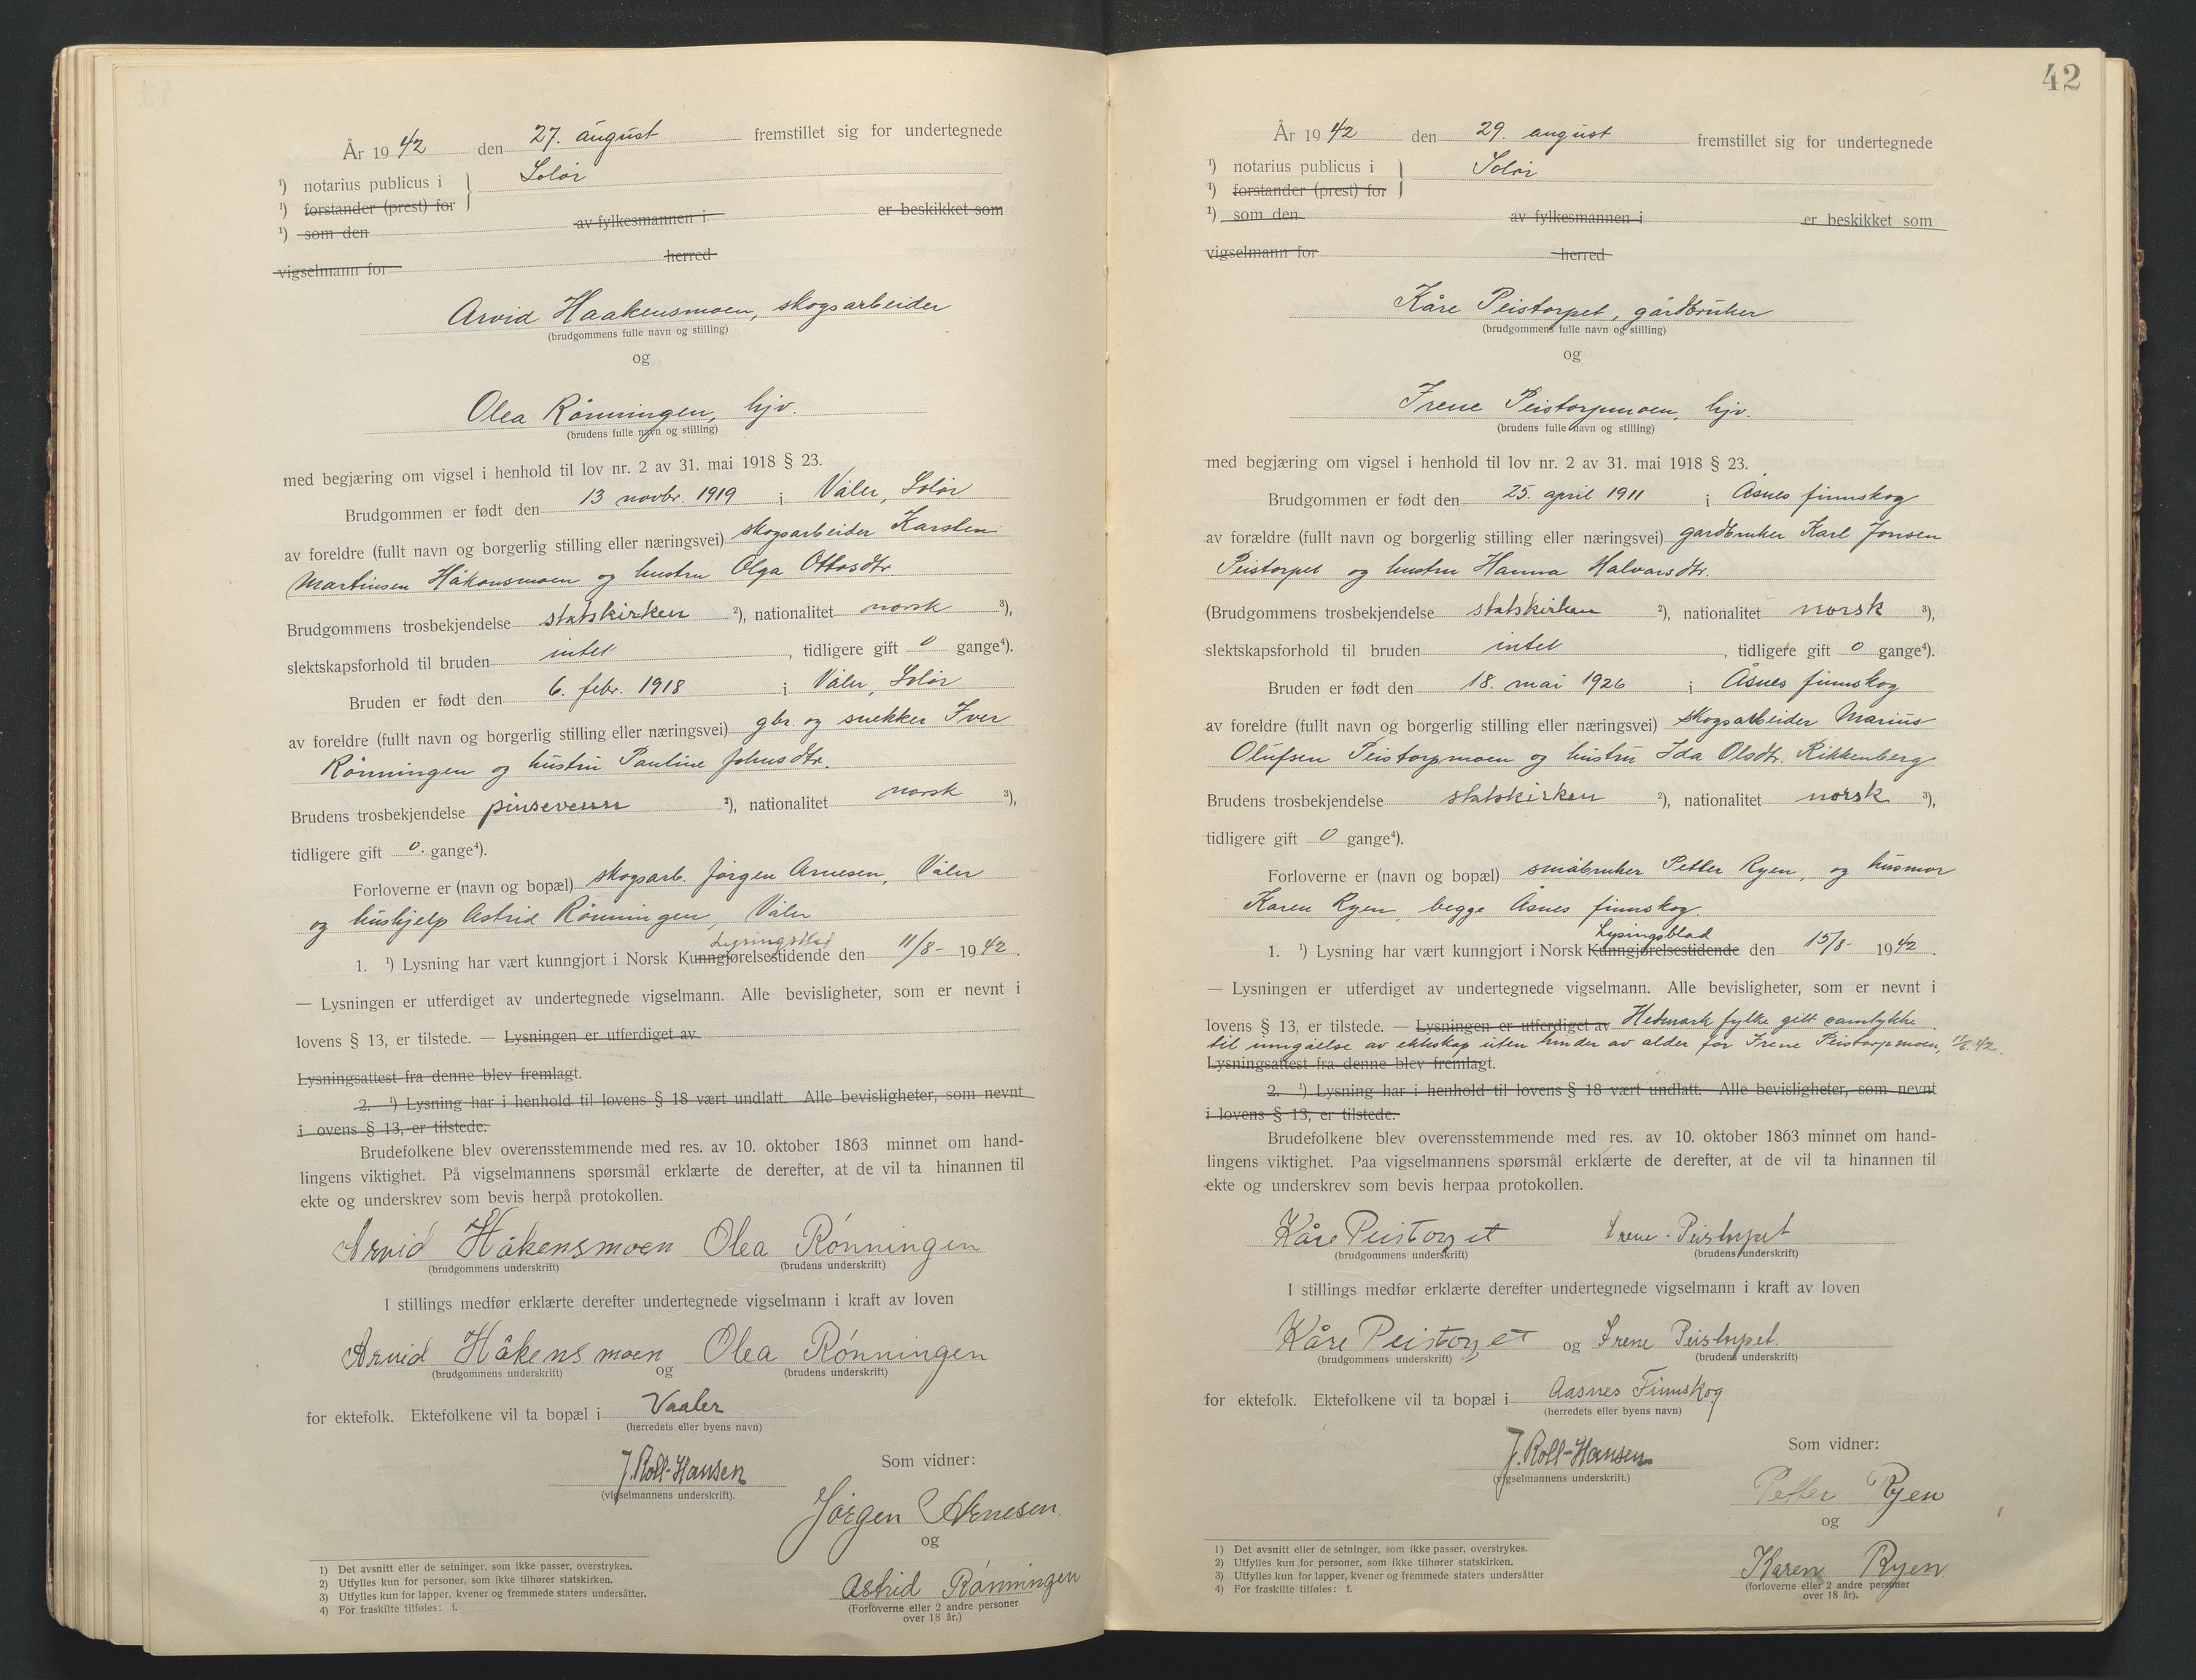 År 19 42 den 27. august fremstillet sig for undertegnede
¹) notarius publicus i Solør
¹) forstander (prest) for
¹) som den av fylkesmannen i er beskikket som
vigselmann for herred
Arvid Haakensmoen, skogsarbeider
(brudgommens fulle navn og stilling)
og
Olea Rønningen, hjv.
(brudens fulle navn og stilling)
med begjæring om vigsel i henhold til lov nr. 2 av 31. mai 1918 § 23.
Brudgommen er født den 13 novbr. 1919 i Våler, Solør
av foreldre (fullt navn og borgerlig stilling eller næringsvei) skogsarbeider Karsten
Martinsen Håkonsmoen og hustru Olga Ottosdtr.
Brudgommens trosbekjendelse statskirken ²), nationalitet norsk ³),
slektskapsforhold til bruden intet, tidligere gift 0 gange⁴).
Bruden er født den 6. febr. 1918 i Våler, Solør
av foreldre (fullt navn og borgerlig stilling eller næringsvei) gbr. og snekker Iver
Rønningen og hustru Pauline Johnsdtr.
Brudens trosbekjendelse pinsevenn ²), nationalitet norsk ³),
tidligere gift 0. gange⁴).
Forloverne er (navn og bopæl) skogsarb. Jørgen Arnesen, Våler
og hushjelp Astrid Rønningen, Våler
Lysingsblad
1. ¹) Lysning har vært kunngjort i Norsk Kunngjørelsestidende den 11/8- 1942.
— Lysningen er utferdiget av undertegnede vigselmann. Alle bevisligheter, som er nevnt i
lovens § 13, er tilstede. — Lysningen er utferdiget av
Lysningsattest fra denne blev fremlagt.
2. ¹) Lysning har i henhold til lovens § 18 vært undlatt. Alle bevisligheter, som nevnt
i ovens § 13, er tilstede.
Brudefolkene blev overensstemmende med res. av 10. oktober 1863 minnet om hand-
lingens viktighet. På vigselmannens spørsmål erklærte de derefter, at de vil ta hinannen til
ekte og underskrev som bevis herpå protokollen.
Arvid Håkensmoen Olea Rønningen
(brudgommens underskrift) (brudens underskrift)
I stillings medfør erklærte derefter undertegnede vigselmann i kraft av loven
Arvid Håkensmoen og Olea Rønningen
(brudgommens underskrift) (brudens underskrift)
for ektefolk. Ektefolkene vil ta bopæl i Vaaler
(herredets eller byens navn)
J. Roll-Hansen
(vigselmannens underskrift).
Som vidner:
Jørgen Arnesen.
og
Astrid Rønningen
(Forloverne eller 2 andre personer
over 18 år.)
1) Det avsnitt eller de setninger, som ikke passer, overstrykes.
2) Utfylles kun for personer, som ikke tilhører statskirken.
3) Utfylles kun for lapper, kvener og fremmede staters undersåtter.
4) For fraskilte tilføies: f.
42
År 19 42 den 29. august fremstillet sig for undertegnede
¹) notarius publicus i Solør
¹) forstander (prest) for
¹) som den av fylkesmannen i er beskikket som
vigselmann for herred
Kåre Peistorpet, gårdbruker
(brudgommens fulle navn og stilling)
og
Irene Peistorpmoen, hjv.
(brudens fulle navn og stilling)
med begjæring om vigsel i henhold til lov nr. 2 av 31. mai 1918 § 23.
Brudgommen er født den 25. april 1911 i Åsnes finnskog
av forældre (fullt navn og borgerlig stilling eller næringsvei) gardbruker Karl Jonsen
Peistorpet og hustru Hanna Halvorsdtr.
(Brudgommens trosbekjendelse statskirken ²), nationalitet norsk ³),
slektskapsforhold til bruden intet, tidligere gift 0 gange⁴).
Bruden er født den 18. mai 1926 i Åsnes finnskog
av foreldre (fullt navn og borgerlig stilling eller næringsvei) skogsarbeider Marius
Olufsen Peistorpmoen og hustru Ida Olsdtr. Rikkenberg
Brudens trosbekjendelse statskirken ²), nationalitet norsk ³),
tidligere gift 0 gange⁴).
Forloverne er (navn og bopæl) småbruker Petter Ryen, og husmor
Karen Ryen, begge Åsnes finnskog.
Lysingsblad
1. ¹) Lysning har vært kunngjort i Norsk Kunngjørelsestidende den 15/8- 1942.
— Lysningen er utferdiget av undertegnede vigselmann. Alle bevisligheter, som er nevnt i
lovens § 13, er tilstede. — Lysningen er utferdiget av Hedmark fylke gitt samtykke
til inngåelse av ekteskap uten hinder av alder for Irene Peistorpmoen,
Lysningsattest fra denne blev fremlagt.
2. ¹) Lysning har i henhold til lovens § 18 vært undlatt. Alle bevisligheter, som nevnt
i lovens § 13, er tilstede.
Brudefolkene blev overensstemmende med res. av 10. oktober 1863 minnet om hand-
lingens viktighet. Paa vigselmannens spørsmål erklærte de derefter, at de vil ta hinannen til
ekte og underskrev som bevis herpaa protokollen.
Kåre Peistorpet Irene Peistorpet
(brudgommens underskrift) (brudens underskrift)
I stillings medfør erklærte derefter undertegnede vigselmann i kraft av loven
Kåre Peistorpet og Irene Peistorpet.
(brudgommens underskrift) (brudens underskrift)
for ektefolk. Ektefolkene vil ta bopæl i Aasnes Finnskog
(herredets eller byens navn)
J. Roll-Hansen
(vigselmannens underskrift.)
Som vidner:
Petter Ryen
og
Karen Ryen
(forloverne eller 2 andre personer
over 18 år).
1) Det avsnitt eller de setninger, som ikke passer, overstrykes.
2) Utfylles kun for personer, som ikke tilhører statskirken.
3) Utfylles kun for lapper, kvener og fremmede staters undersåtter
4) For fraskilte tilføies: f.